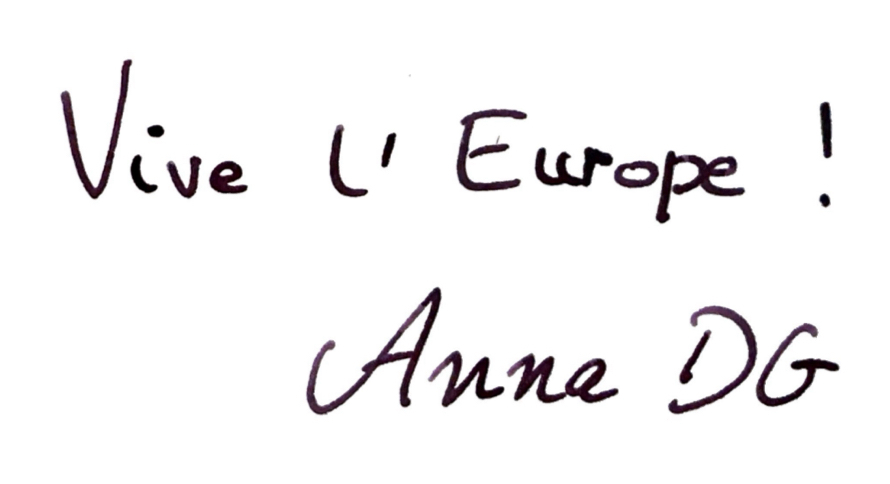 Vive l'Europe !
Anna DG